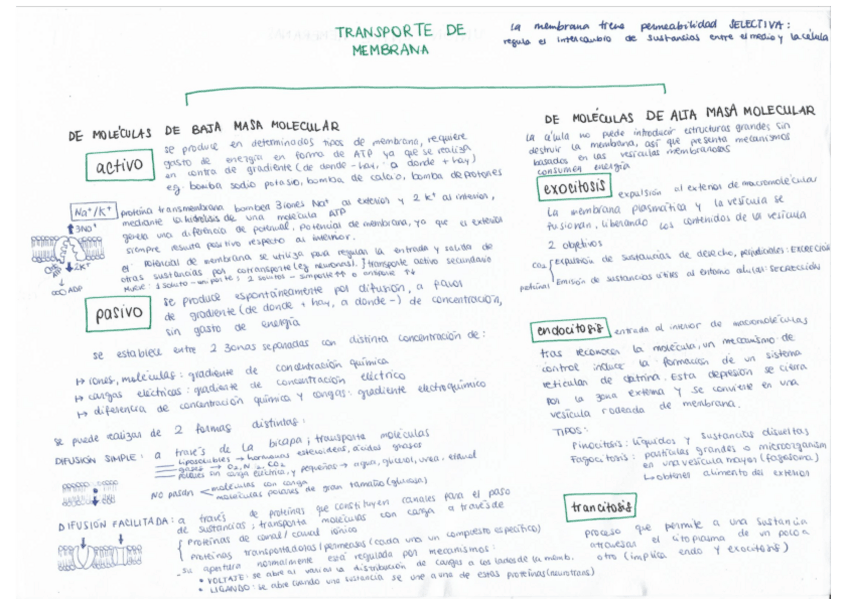 TRANSPORTE DE
MEMBRANA
La membrana tiene permeabilidad SELECTIVA:
regula el intercambio de sustancias entre el medio y la célula
DE MOLÉCULAS DE BAJA MASA MOLECULAR
activo
se produce en determinados tipos de membrana, requiere
gasto de energía en forma de ATP ya que se realiza
en contra de gradiente (de donde - hay, a donde + hay)
eg: bomba sodio potasio, bomba de calcio, bomba de protones
Na⁺/K⁺
proteína transmembrana bombea 3 iones Na⁺ al exterior y 2 K⁺ al interior,
mediante la hidrólisis de una molécula ATP
genera una diferencia de potencial, potencial de membrana, ya que el exterior
siempre resulta positivo respecto al interior.
el potencial de membrana se utiliza para regular la entrada y salida de
otras sustancias por cotransporte (eg neuronas). } transporte activo secundario
mueve: 1 soluto - uniporte; 2 solutos - simporte ↑↑ o antiporte ↑↓
3Na⁺
2K⁺
ADP
pasivo
se produce espontáneamente por difusión, a favor
de gradiente (de donde + hay, a donde -) de concentración,
sin gasto de energía
se establece entre 2 zonas separadas con distinta concentración de:
↦ iones, moléculas: gradiente de concentración química
↦ cargas eléctricas: gradiente de concentración eléctrico
↦ diferencia de concentración química y cargas: gradiente electroquímico
se puede realizar de 2 formas distintas:
DIFUSIÓN SIMPLE: a través de la bicapa; transporta moléculas
liposolubles → hormonas esteroideas, ácidos grasos
gases → O₂, N₂, CO₂
polares sin carga eléctrica, y pequeños → agua, glicerol, urea, etanol
NO PASAN < moléculas con carga
moléculas polares de gran tamaño (glucosa)
DIFUSIÓN FACILITADA: a través de proteínas que constituyen canales para el paso
de sustancias; transporta moléculas con carga a través de
{ Proteínas de canal / canal iónico
Proteínas transportadoras / permeasas (cada una un compuesto específico)
- su apertura normalmente está regulada por mecanismos:
• VOLTAJE: se abre al variar la distribución de cargas a los lados de la memb.
• LIGANDO: se abre cuando una sustancia se une a una de estas proteínas (neurotrans)
DE MOLÉCULAS DE ALTA MASA MOLECULAR
La célula no puede introducir estructuras grandes sin
destruir la membrana, así que presenta mecanismos
basados en las vesículas membranosas
consumen energía
exocitosis
expulsión al exterior de macromoléculas
La membrana plasmática y la vesícula se
fusionan, liberando los contenidos de la vesícula
2 objetivos
expulsión de sustancias de desecho, perjudiciales: EXCRECIÓN
Emisión de sustancias útiles al entorno celular: SECRECCIÓN
endocitosis
entrada al interior de macromoléculas
tras reconocer la molécula, un mecanismo de
control induce la formación de un sistema
reticular de clatrina. Esta depresión se cierra
por la zona externa y se convierte en una
vesícula rodeada de membrana.
TIPOS:
Pinocitosis: líquidos y sustancias disueltas
Fagocitosis: partículas grandes o microorganism
en una vesícula mayor (fagosoma)
↳ obtener alimento del exterior
trancitosis
proceso que permite a una sustancia
atravesar el citoplasma de un polo a
otro (implica endo y exocitosis)